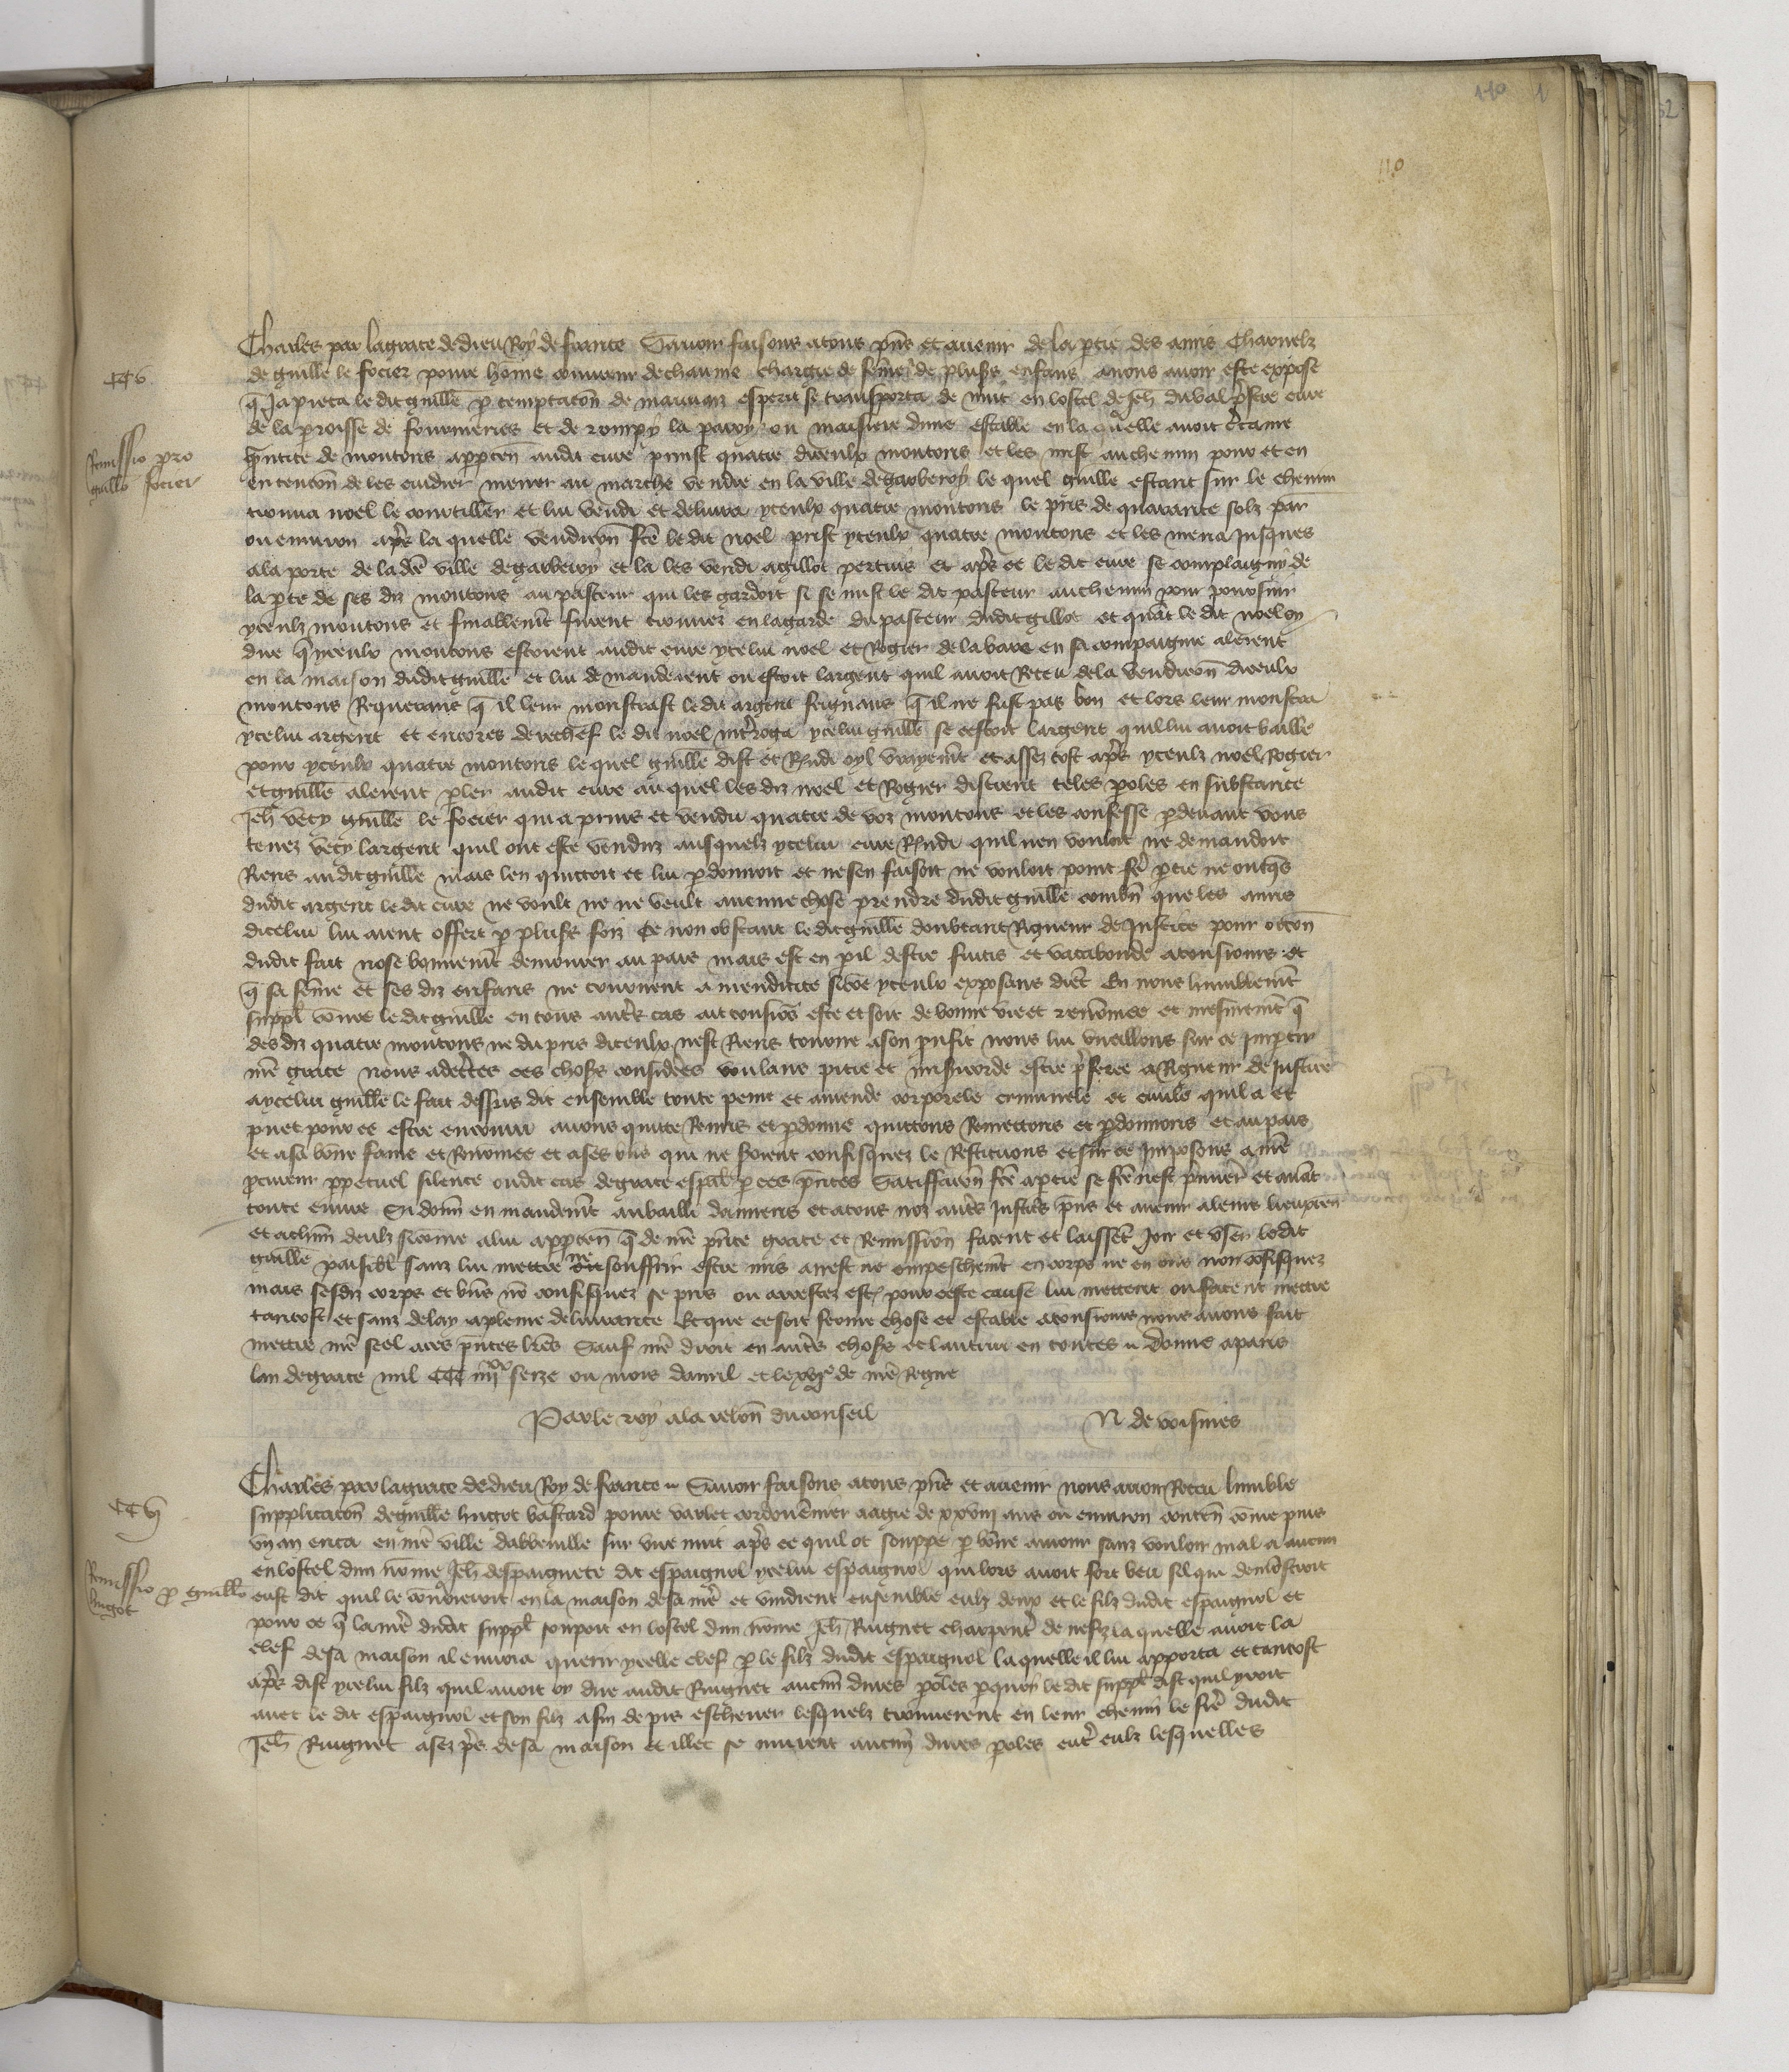 110 1
110
Charles par la grace de dieu Roy de france Savoir faisons a tous pñs et avenir de la ptie des amis Charnelz
CCVI
de guillẽ le focier povre hõme couvreur de chaume chargie de fẽme et de plusrs enfans avons avoir este expose
q̃ Japieca le dit guillẽ p temptacõn de mauvaiz esperit se transporta de nuit en lostel de Jeh̃ duval prestre cure
de la proisse de fourneries et de rompy la paroy ou maisiere dune estable en la quelle avoit ctaine
Remissio pro
guillo focier
quãtite de moutons apptẽn audit cure print quatre diceulx moutons et les mist au chemin pour et en
entencõn de les cuidier mener au marche vendre en la ville de gerberoy le quel guillẽ estant sur le chemin
trouva noel le courtiller et lui vendi et delivra yceulx quatre moutons le pris de quarante solz par
ou environ apres la quelle vendicõn fcẽ le dit noel prist yceulx quatre moutons et les mena jusques
a la porte de la dcẽ ville de gerberoy et la les vendi a gillot pertuis et apres ce le dit cure se complaigny de
la pte de ses diz moutons au pasteur qui les gardoit si se mist le dit pasteur au chemin pour poursuir
yceulz moutons et finallemt furent trouvez en la garde du pasteur dudit gillot et quãt le dit noel oy
dire q̃ yceulx moutons estoient audit cure ycelui noel et Rogier de la bare en sa compaignie alerent
en la maison dudit guillẽ et lui demanderent ou estoit largent quil avoit Receu de la vendicõn diceulx
moutons Requerans q̃ il leur monstrast le dit argent feignans q̃ il ne fust pas bon et lors leur monstra
ycelui argent et encores derechef le dit noel intrroga ycelui guillẽ se cestoit largent quil lui avoit baille
pour yceulx quatre moutons le quel guillẽ dist et Rñdi oyl vrayemt et assez tost apres yceulz noel Rogier
et guillẽ alerent pler audit cure au quel les diz noel et Rogier distrent teles poles en substance
Jeh̃ vecy guillẽ le focier qui a prins et vendu quatre de voz moutons et les confesse pdevant vous
tenez vecy largent quil ont este venduz ausquelz ycelui cure Rñdi quil nen vouloit ne demandoit
Riens audit guillẽ mais len quittoit et lui pdonnoit et nesen faisoit ne vouloit point fẽ ptie ne onq̃s
dudit argent le dit cure ne voult ne ne veult aucune chose prendre dudit guillẽ combñ que les amis
dicelui lui aient offert p plusrs foiz Ce non obstant le dit guillẽ doubtant Rigueur de Justice pour occõn
dudit fait nose bonnemt demourer au pais mais est en pil destre fuitis et vacabonde atousiours et
q̃ sa fẽme et ses diz enfans ne tournent a mendicite sicõe yceulx exposans diẽt En nous humblemt
suppl cõme le dit guillẽ en tous autres cas ait tousiõs este et soit de bonne vie et renõmee et mesmemt q̃
des diz quatre moutons ne du pris diceulx nest Riens tourne a son prufit nous lui vueillons sur ce Imptir
nrẽ grace nous adcertes ces choses considẽes voulans pitie et misicorde estre preferee a Rigueur de Justice
a ycelui guillẽ le fait dessus dit ensemble toute peine et amende corporele criminele et civile quil a et
puet pour ce estre encouru avons quitte Remis et pdonne quittons Remettons et pdonnons et au pais
et a sa bõne fame et Renomee et a ses bñs qui ne seroient confisquez le Restituons et sur ce Imposons a nrẽ
procureur ppetuel silence oudit cas de grace espal p ces pñtes Satiffacõn fcẽ a ptie se fcẽ nest premier et avãt
toute euvre Si donñ en mandemt au bailli damiens et a tous noz autres Justics pñs et avenir a leurs lieuxten
et a chũn deulz sicõme a lui appten q̃ de nrẽ pñte grace et Remission facent et laissẽt Joir et usẽr le dit
guillẽ paisibl sanz lui mettre ne souffrir estre mis arrest ne empeschemt en corps ne en bñs non cõfisquez
mais ses diz corps et bñs nõ confisquez se pris ou arrestez est pour ceste cause lui mettent ou facent mettre
tantost et sanz delay a pleine delivrance Et que ce soit ferme chose et estable atousiours nous avons fait
mettre nrẽ seel a ces pñtes lrẽs Sauf nrẽ droit en autres choses et lautrui en toutes Donne a paris
lan de grace mil CCC IIIIxx seize ou mois davril et le xvie de nrẽ Regne
Par le roy a la relcõn du conseil N de voisines
Charles par la grace de dieu Roy de france Savoir faisons a tous pñs et avenir nous avon Receu lumble
CCVII
supplicacõn de guillẽ hugot bastard povre varlet cordouẽnier aagie de xxviii ans ou environ contẽn cõme puis
un an enca en nrẽ ville dabbeville sur une nuit apres ce quil ot souppe p bõne amour sanz vouloir mal a aucun
en lostel dun nõme Jeh̃ despaignete dit espaignol ycelui espaignol qui lors avoit fort beu silqui demõstroit
Remissio p guillo
hugot
eust dit quil le cõvoieroit en la maison de sa mẽ et vindrent ensemble eulz deux et le filz dudit espaignol et
pour ce q̃ la mẽ dudit suppl soupoit en lostel dun nõme Jeh̃ Ruignet charpentr de nefz la quelle avoit la
clef de sa maison il envoia querir ycelle clef p le filz dudit espaignol la quelle il lui apporta et tantost
apres dist ycelui filz quil avoit oy dire audit Ruignet aucuñ dures poles pquoy le dit suppl dist quil yroit
avec le dit espaignol et son filz afin de pis eschever lesquelz trouverent en leur chemin le frẽ dudit
Jeh̃ Ruignet asez pres de sa maison et illec se murent aucuñ dures poles entre eulz lesquelles